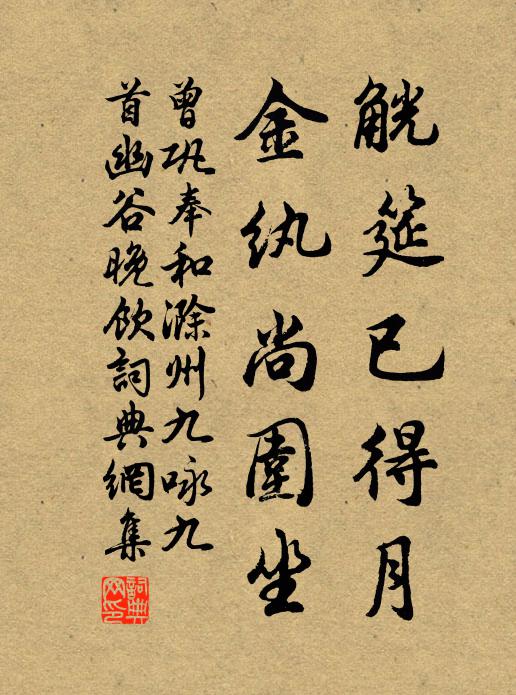 觥筵已得月
金紈尚圍坐
曾巩奉和滁州九咏九
首幽谷晚飲詞典網集
詞典网印